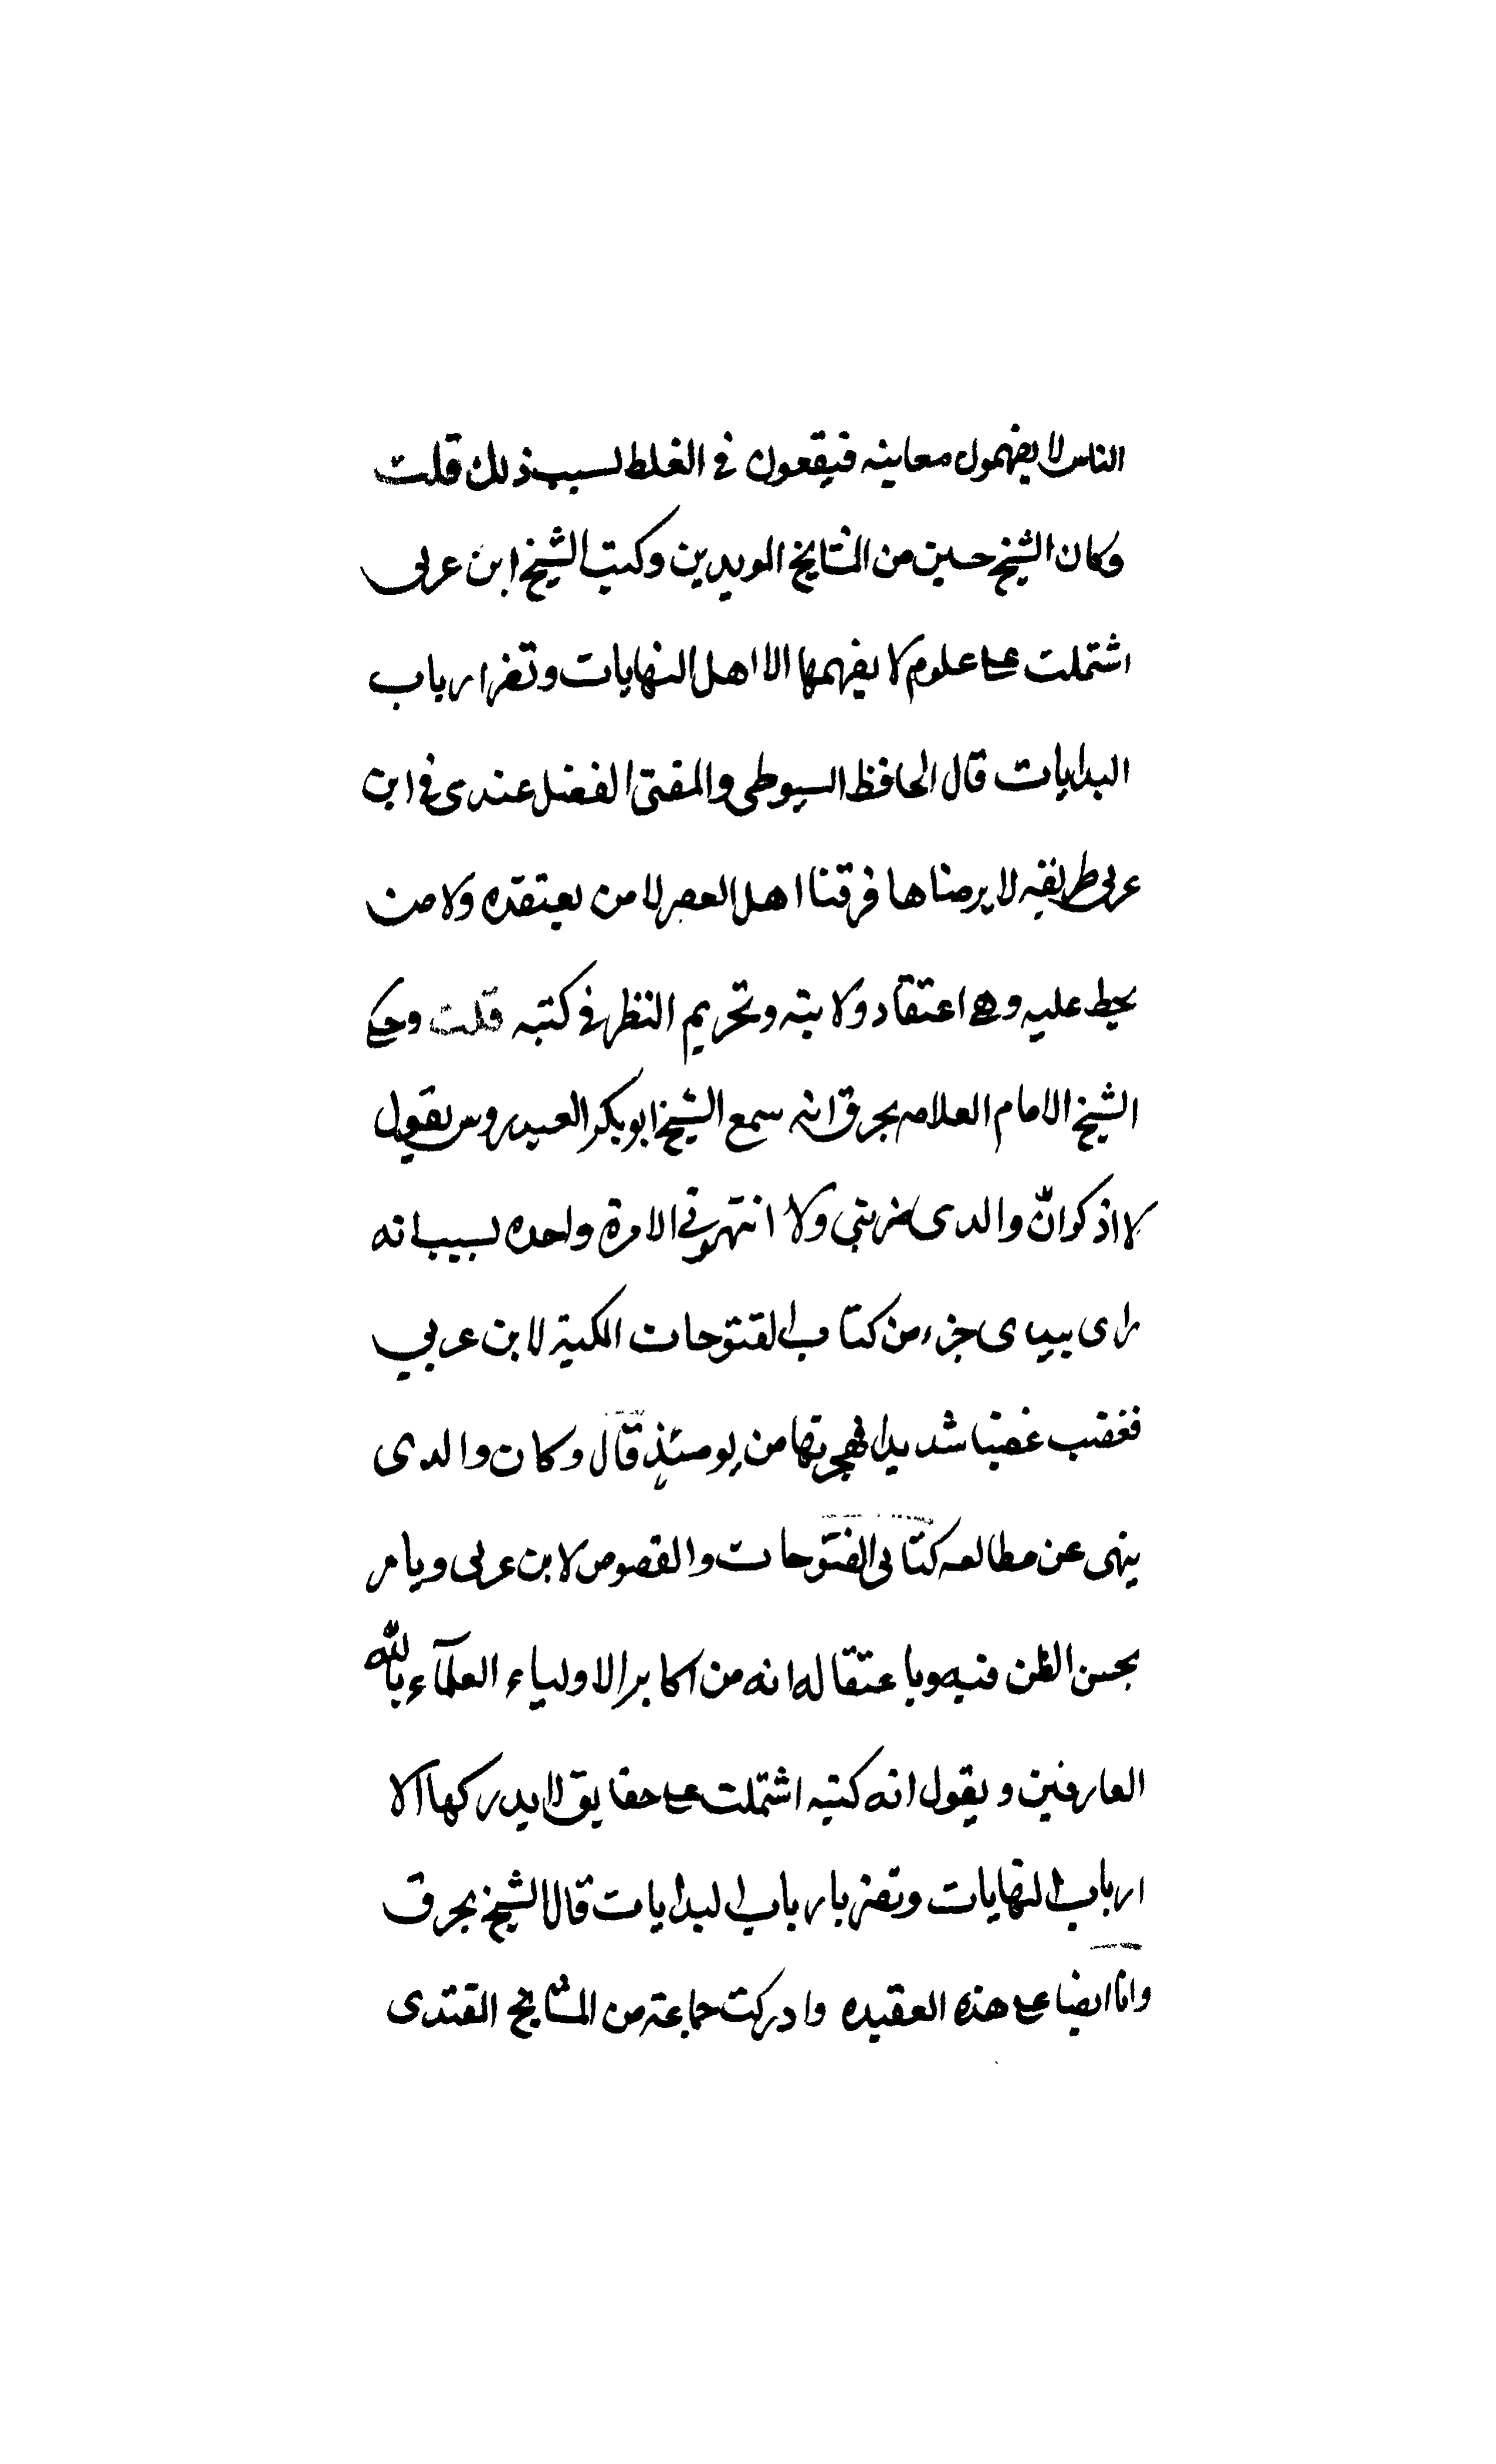 الناس لا يفهمون معانيه فيقعون في الغلط لسبب ذلك قلت
وكان الشيخ حسين من المشايخ المويدين وكتب الشيخ ابن عربى
اشتملت على علوم لا يفهمها الا اهل النهايات وتضر ارباب
البدايات قال الحافظ السيوطى والمفتى الفضل عندى في ابن
عربى طريقه لا يرضاها فرقتا اهل العصر لا من يعتقده ولا من
يحط عليه وهي اعتقاد ولايته وتحريم النظر في كتبه قلت وحكى
الشيخ الامام العلامه بحرق انه سمع الشيخ ابوبكر العيدروس يقول
لا اذكر انّ والدى ضربني ولا انتهرني الا مرة واحده لسبب انه
راى بيدى جزء من كتاب الفتوحات المكية لابن عربي
فغضب غضبا شديدا فهجرتها من يومئذٍ قال وكان والدى
ينهى عن مطالعه كتابى الفتوحات والفصوص لابن عربى ويامر
بحسن الظن فيه وباعتقاله انه من اكابر الاولياء العلمآء بالله
العارفين ويقول انه كتبه اشتملت على حقايق لا يدركها الا
ارباب النهايات وتضر بارباب البدايات قال الشيخ بحرق
وانا ايضا على هذه العقيده وادركت جماعة من المشايخ القتدى